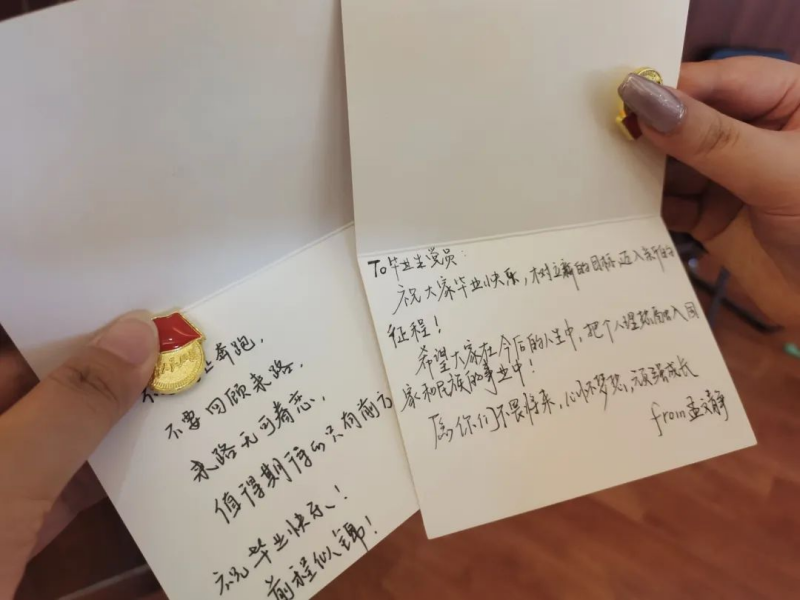 奔跑,
不要回顾来路,
来路无可眷恋,
值得期待的只有前方
祝毕业快乐!
前程似锦!
To毕业生党员:
祝大家毕业快乐,树立新的目标,迈入新的
征程!
希望大家在今后的人生中,把个人理想融入国
家和民族的事业中!
愿你们不畏将来,心怀梦想,顽强成长
from孟文静